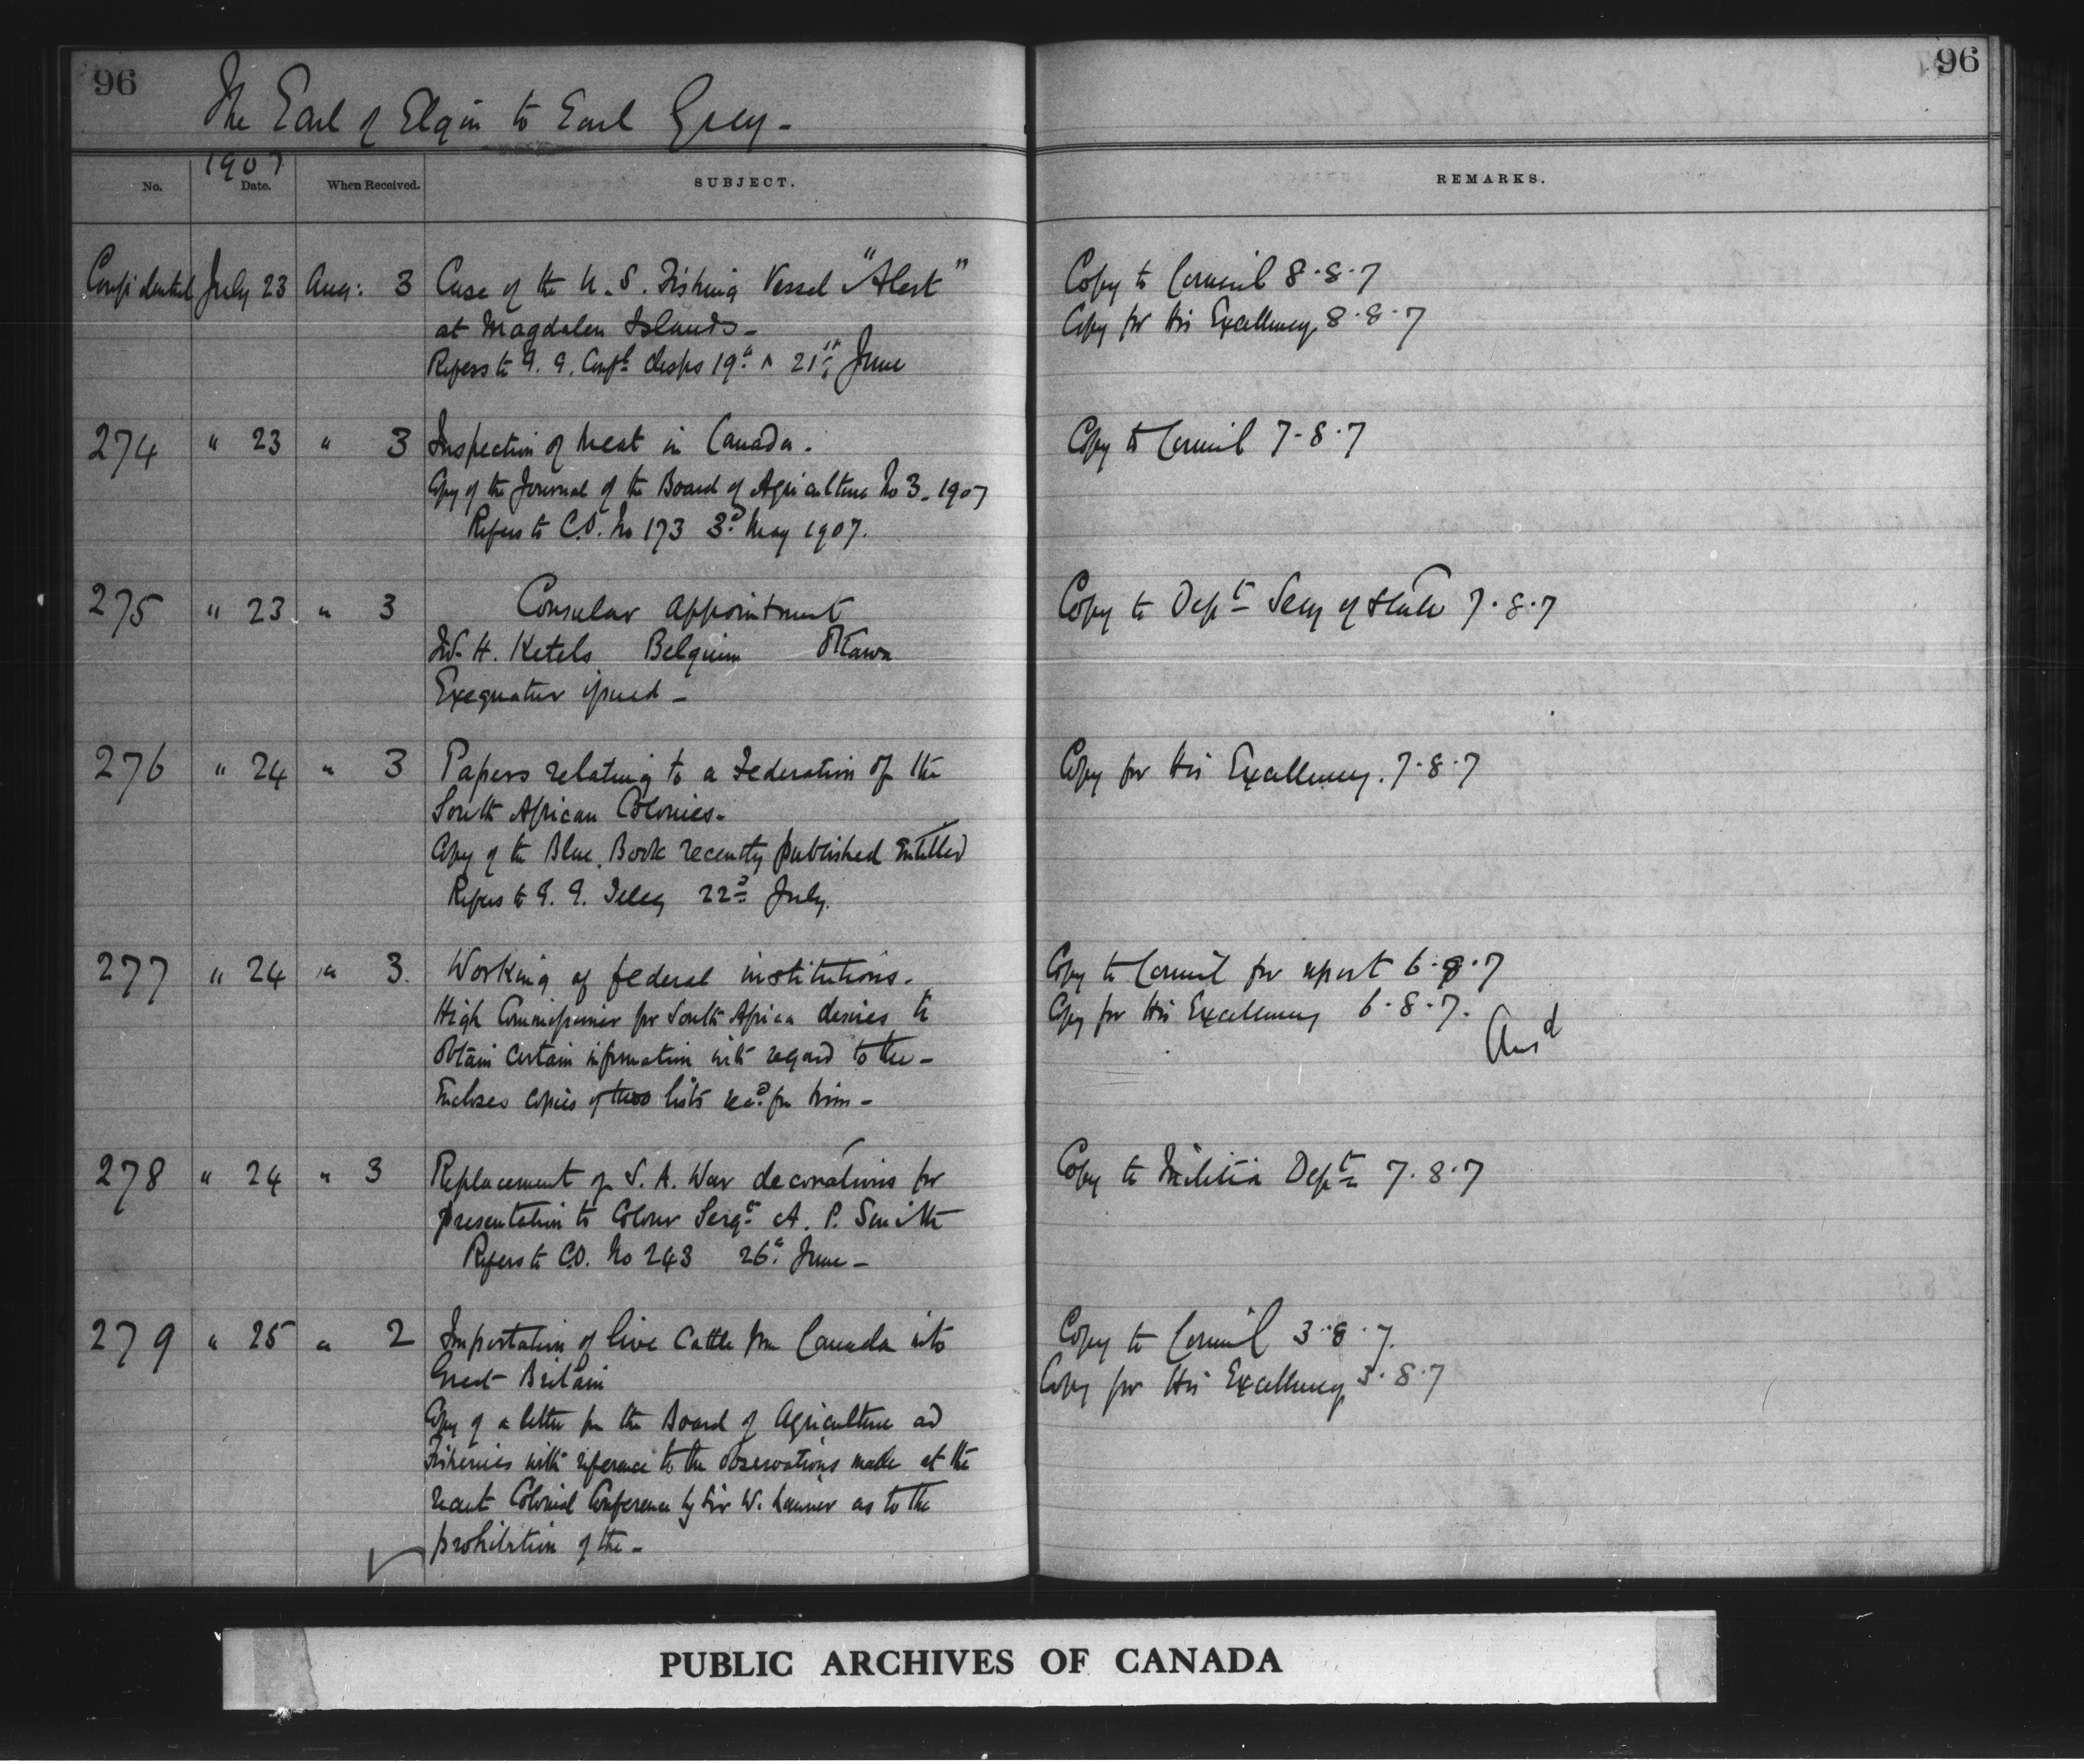 96
96
The Earl of Elgin to Earl Grey -
1907
No. Date. When Received. SUBJECT. REMARKS.
Confidential July 23 Aug: 3 Case of the U. S. Fishing Vessel "Alert" Copy to Council 8.8.7
at Magdalen Islands - Copy for His Excellency 8.8.7
Refers to G. G. Confl desps 19th & 21st June
274 " 23 " 3 Inspection of Meat in Canada. Copy to Council 7.8.7
Copy of the Journal of the Board of Agriculture No 3. 1907
Refers to C.O. No 173 3d May 1907.
275 " 23 " 3 Consular Appointment Copy to Dept Secy of State 7.8.7
H. Ketels Belgium Ottawa
Exequatur issued -
276 " 24 " 3 Papers relating to a Federation of the Copy for His Excellency. 7.8.7
South African Colonies -
Copy of the Blue Book recently published entitled
Refers to G. G. Teleg 22d July.
277 " 24 " 3. Working of federal institutions. Copy to Council for report 6.8.7
High Commissioner for South Africa desires to Copy for His Excellency 6.8.7.
obtain certain information with regard to the - Ansd
Encloses copies of two lists recd fm him -
278 " 24 " 3 Replacement of S. A. War decorations for Copy to Militia Dept 7.8.7
presentation to Colour Sergt A. P. Smith
Refers to C.O. No 243 26th June -
279 " 25 " 2 Importation of live Cattle from Canada into Copy to Council 3.8.7.
Great Britain Copy for His Excellency 3.8.7
Copy of a letter fm the Board of Agriculture ad
Fisheries with reference to the observations made at the
recent Colonial Conference by Sir W. Laurier as to the
prohibition of the -
PUBLIC ARCHIVES OF CANADA